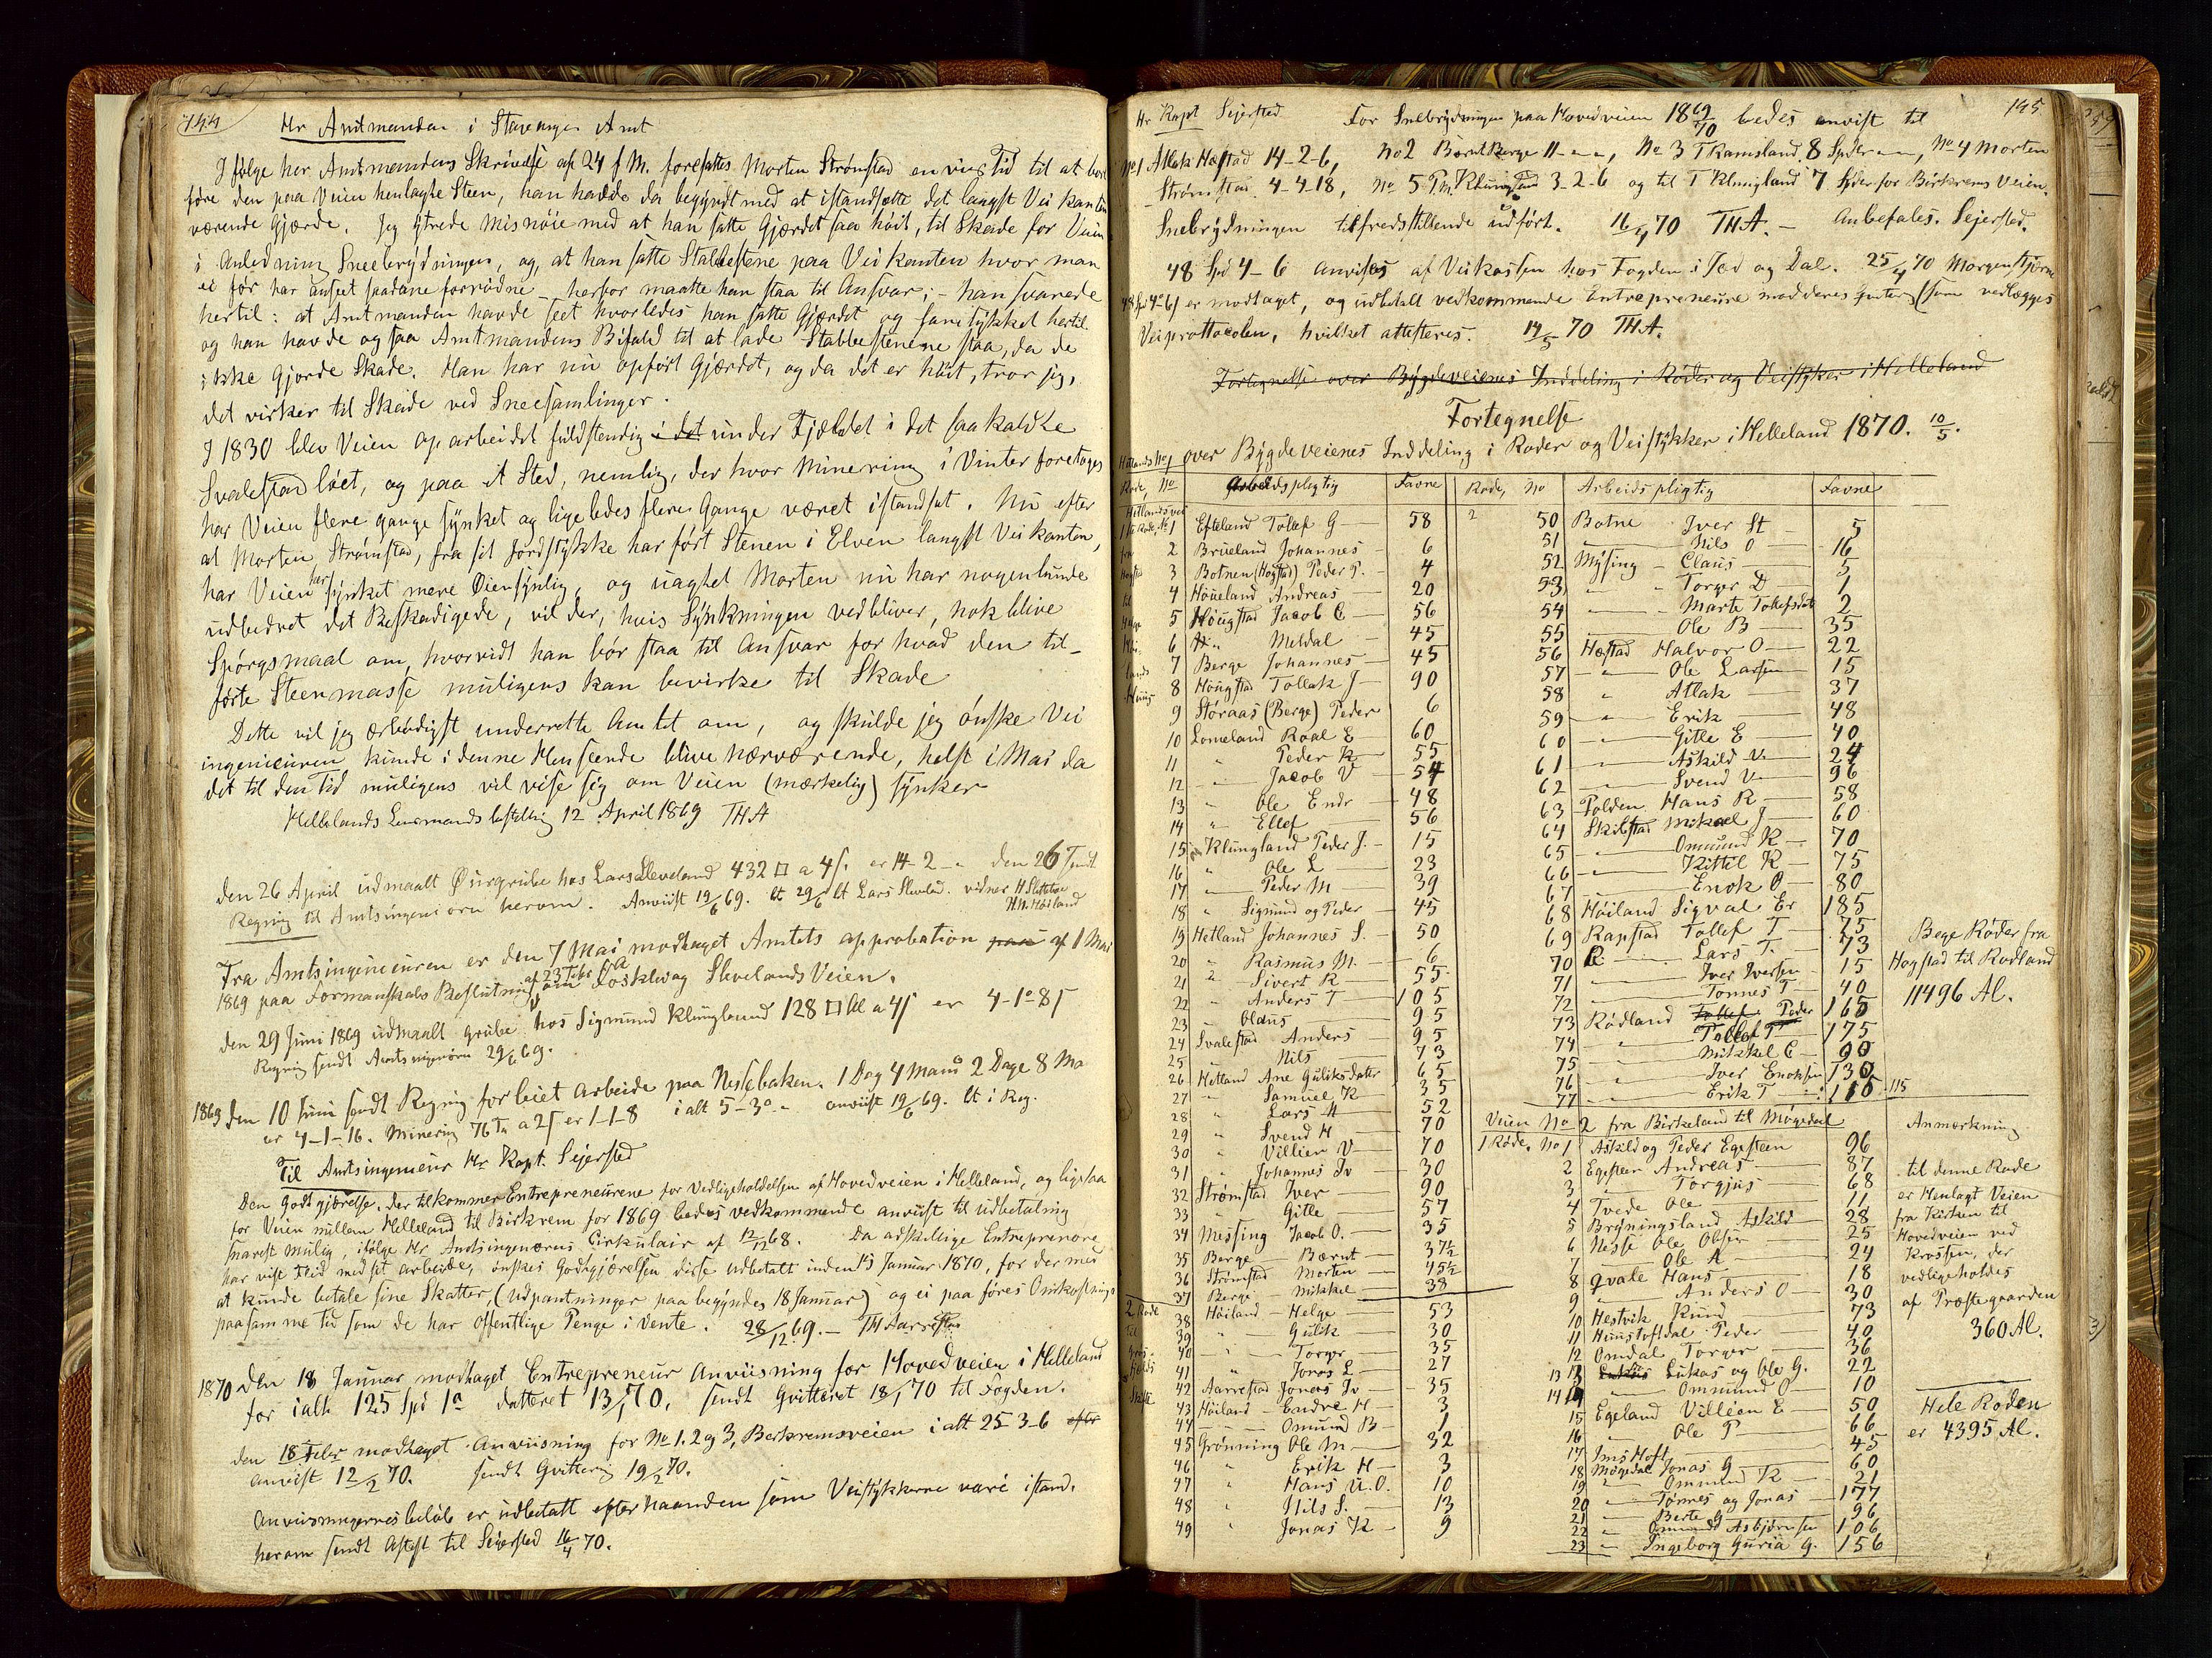 144
Hr Amtmanden i Stavanger Amt
Ifølge Hr Amtmandens Skrivelse af 24 f M. foresattes Morten Strømstad en vis Tid til at bort
føre den paa Veien henlagte Steen, han havde da begyndt med at istandsætte det langst Vei kanten
værende Gjærde. Jeg ytrede Misnøie med at han satte Gjærdet saa høit, til Skade for Veien
i Anledning Sneebrydningen, og, at han satte Stabbestene paa Vei kanten hvor man
ei før har anseet saadane fornødne – herfor maatte han staa til Ansvar; – han svarede
hertil: at Amtmanden havde seet hvorledes han satte Gjærdet og samtykket hertil.
og han havde ogsaa Amtmandens Bifald til at lade Stabbestenene staa, da de
ikke gjorde Skade. Han har nu opført Gjærdet, og da det er høit, tror jeg,
det virker til Skade ved Sneesamlinger.
I 1830 blev Veien oparbeidet fuldstendig i det under Fjældet i det saakaldte
Svalestadlået, og paa et Sted, nemlig, der hvor Minering i Vinter foretages
har Veien flere gange synket og ligeledes flere Gange været istandsat. Nu efter
at Morten Strømstad, fra sit Jordstykke har ført Stenen i Elven langst Veikanten,
har Veien her synket mere Øiensynlig, og uagtet Morten nu har nogenlunde
udbedret det Beskadigede, vil der, hvis Synkningen vedbliver, nok blive
Spørgsmaal om, hvorvidt han bør staa til Ansvar for hvad den til-
førte Steenmasse muligens kan bevirke til Skade
Dette vil jeg ærbødigst underrette Amtet om, og skulde jeg ønske Vei
ingenieuren kunde i denne Henseende blive nærværende, helst i Mai da
det til den Tid muligens vil vise sig om Veien (mærkelig) synker
Hellelands Lensmandsbestilling 12 April 1869 THA
den 26 April udmaalt Øurgrube hos Lars Sleveland 432 □ a 4 s. er 14-2-" den 26 Sendt
Regning til Amtsingenieuren herom. Anviist 19/6 69. lt 29/6 lt Lars Sleveland. vidner H Slettebø
H.N. Høiland
Fra Amtsingenieuren er den 7 Mai modtaget Amtets approbation paa af 1 Mai
1869 paa Formandskabs Beslutning af 23 Febr om Foss kleiv og Slevelands Veien.
den 29 Juni 1869 udmaalt Grube hos Sigmund Klungland 128 □ Al a 4 s er 4-1-8 s
Regning sendt Amtsingeniøren 29/6 69.
1869 den 10 Juni sendt Regning for leiet Arbeide paa Neslebaken. 1 Dag 4 Mand 2 Dage 8 Ma
er 4-1-16. Minering 76 Tn a 2 s er 1-1-8 i alt 5-3-" anviist 19/6 69. lt i Reg.
Til Amtsingenieur Hr Kapt. Sejersted
Den Godtgjørelse, der tilkommer Entrepreneurene for Vedligeholdelsen af Hovedveien i Helleland, og ligesaa
for Veien mellem Helleland til Birkrem for 1869 bedes vedkommende anviist til udbetaling
snarest mulig, ifølge Hr Amtsingeniørens Cirkulair af 12/12 68. Da adskillige Entreprenøre
har viist Flid med sit arbeide, ønskes Godtgjørelsen disse udbetalt inden 15 Januar 1870, for dermed
at kunde betale sine Skatter, (udpantninger paa begyndes 18 Januar) og ei paa føres Omkostninger
paasamme tid som de har Offentlige Penge i Vente. 28/12 69. – TH Aarrestad
1870 den 18 Januar modtaget Entrepreneur Anviisning for Hovedveien i Helleland
for ialt 125 Spd 1 datteret 13/1 70, sendt Qvitteret 18/1 70 til Fogden.
den 18 Febr modtaget Anviisning for No 1. 2 og 3, Berkremsveien i alt 25-3-6 efter
anviist 12/2 70. sendt Qvittering 19/2 70.
Anviisningernes beløb er udbetalt efterhaanden som Veistykkerne vare istand.
herom sendt Attest til Sejersted 16/4 70.
145
Hr Kapt Sejersted For Snebrydningen paa Hovedveien 1869/70 bedes anvist til
No 1 Atlak Hæstad 14-2-6, No 2 Bærnt Berge 11-"-", No 3 T Ramsland 8 Spdr-"-", No 4 Morten
Strømstad 4-4-18, No 5 P M. Klungland 3-2-6 og til T Klungland 7 Spdr for Birkrems Veien.
Snebrydningen tilfredsstillende udført. 16/4 70 THA. – Anbefales. Sejersted.
48 Spd 4-6 anvises af Veikassen hos Fogden i Jed og Dal. 25/4 70 Morgenstjerne
48 Spd 4-6 er modtaget, og udbetalt vedkommende Entrepreneure mod deres Qvittering (som vedlægges
Veiprottocolen, hvilket attesteres. 14/5 70 THA.
Fortegnelse over Bygdeveienes Inddeling i Roder og Veistyker i Helleland
Fortegnelse
over Bygdeveienes Inddeling i Roder og Veistykker i Helleland 1870. 10/5.
Rode, No Arbeidspligtig Favne
1 Efteland Tollef G 58
2 Brueland Johannes 6
3 Botnen (Hogstad) Peder P. 4
4 Høueland Andreas 20
5 Høugstad Jacob C 56
6 " Meldal 45
7 Berge Johannes 45
8 Høugstad Tollak J 90
9 Støraas (Berge) Peder 6
10 Lomeland Roal E 60
11 " Peder K 55
12 " Jacob V 54
13 " Ole Endr 48
14 " Ellef 56
15 Klungland Peder J. 15
16 " Ole L 23
17 " Peder M 39
18 " Sigmund og Peder 45
19 Hetland Johannes S. 50
20 " Rasmus M. 6
21 " Sivert R 55
22 " Anders T 105
23 " Olaus 95
24 Svalestad Anders 95
25 " Nils 73
26 Hetland Ane Guliksdatter 65
27 " Samuel K 35
28 " Lars H 52
29 " Svend H 70
30 " Villien V 70
31 " Johannes Iv 30
32 Strømstad Iver 90
33 " Gitle 57
34 Messing Jacob O. 35
35 Berge Bærnt 37½
36 Strømstad Morten 45½
37 Berge Mikkel 38
2 Rode
38 Høiland Helge 53
39 " Gulik 30
40 " Torger 35
41 " Jonas L 27
42 Aarrestad Jonas Iv 35
43 Høiland Endre H 3
44 " Omund B 1
45 Grønning Ole M 32
46 " Erik H 3
47 " Hans U.O. 10
48 " Nils S. 13
49 " Jonas K 9
Rode, No Arbeids pligtig Favne
2 50 Botne Iver St 5
51 " Nils O 16
52 Mysing Claus 5
53 " Torger D 1
54 " Marte Tollefsdatter 2
55 " Ole B 35
56 Hæstad Halvor O 22
57 " Ole Larsen 15
58 " Atlak 37
59 " Erik 48
60 " Gitle E 40
61 " Askild V. 24
62 " Svend V. 96
63 Polden Hans R 58
64 Skibstad Mikael J 60
65 " Omund K 70
66 " Kittil K 75
67 " Enok O 80
68 Høiland Sigval Er 185
69 Rapstad Tollef T 75
70 R " Lars T. 73
71 " Iver Iversen 15
72 " Tonnes T 40
73 Rødland Tollef Peder 165
74 " Tollef T 175
75 " Mikkel C 90
76 " Iver Enoksen 130
77 " Erik T 110. 115
Bege Roder fra
Hogstad til Rødland
11496 Al.
Veien No 2 fra Birkeland til Møgedal Anmærkning
1 Rode. No 1 Askild og Peder Egesteen 96
2 Egesteen Andreas 87
3 " Torgjus 68
4 Tvede Ole 11
5 Bryningsland Askild 28
6 Nesse Ole Olsen 25
7 " Ole A 24
8 Qvale Hans 18
9 " Anders O 30
10 Hestvik Knud 73
11 Hunstofldal Peder 40
12 Omdal Torger 36
13 Lukas og Ole G. 22
14 " Ommund O 10
15 Egeland Villien E 50
16 " Ole P 66
17 Ims Hoft 45
18 Møgedal Jonas G 60
19 " Ommund K 21
20 " Tønnes og Jonas 177
21 " Berte G 96
22 " Omund Asbjørnsen 106
23 " Ingeborg Guria G. 156
til denne Rode
er Henlagt Veien
fra Kirken til
Hovedveien ved
Krossen, der
vedligeholdes
af Præstegaarden
360 Al.
Hele Roden
er 4395 Al.